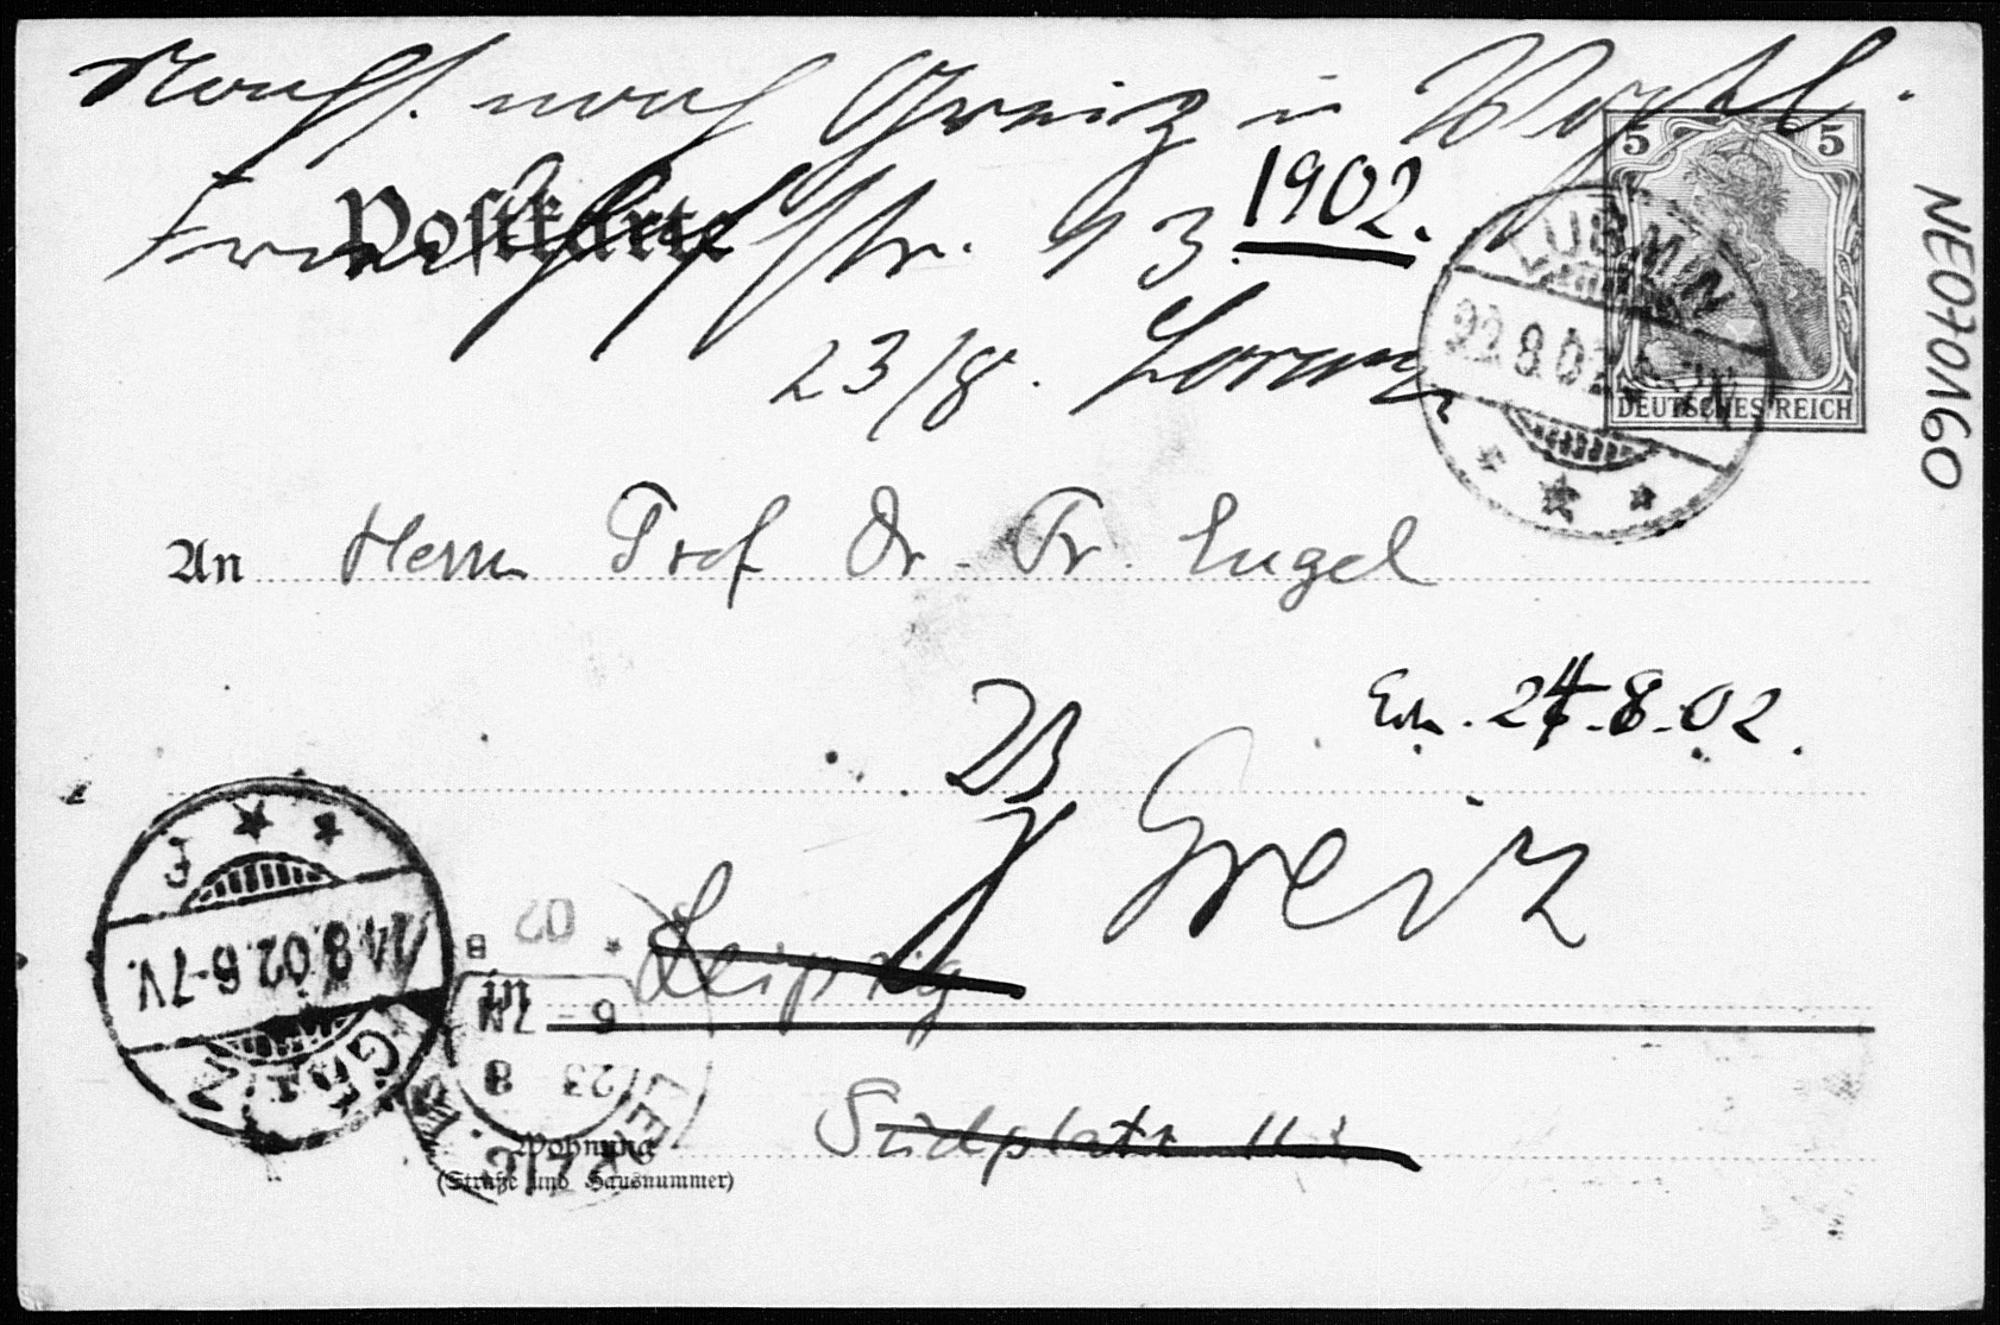 Nachs. nach Greiz i Vogtl.
Postkarte
str. 1902.
23/8.
5 5
DEUTSCHES REICH
LUBMIN
22.8.02
NE070160
An Herrn Prof Dr. Fr. Engel
24.8.02.
Greiz
in Leipzig
Südplatz 11
Wohnung
(Straße und Hausnummer)
GREIZ
24.8.02.6-7V.
LEIPZIG
23 8
6-7N
02